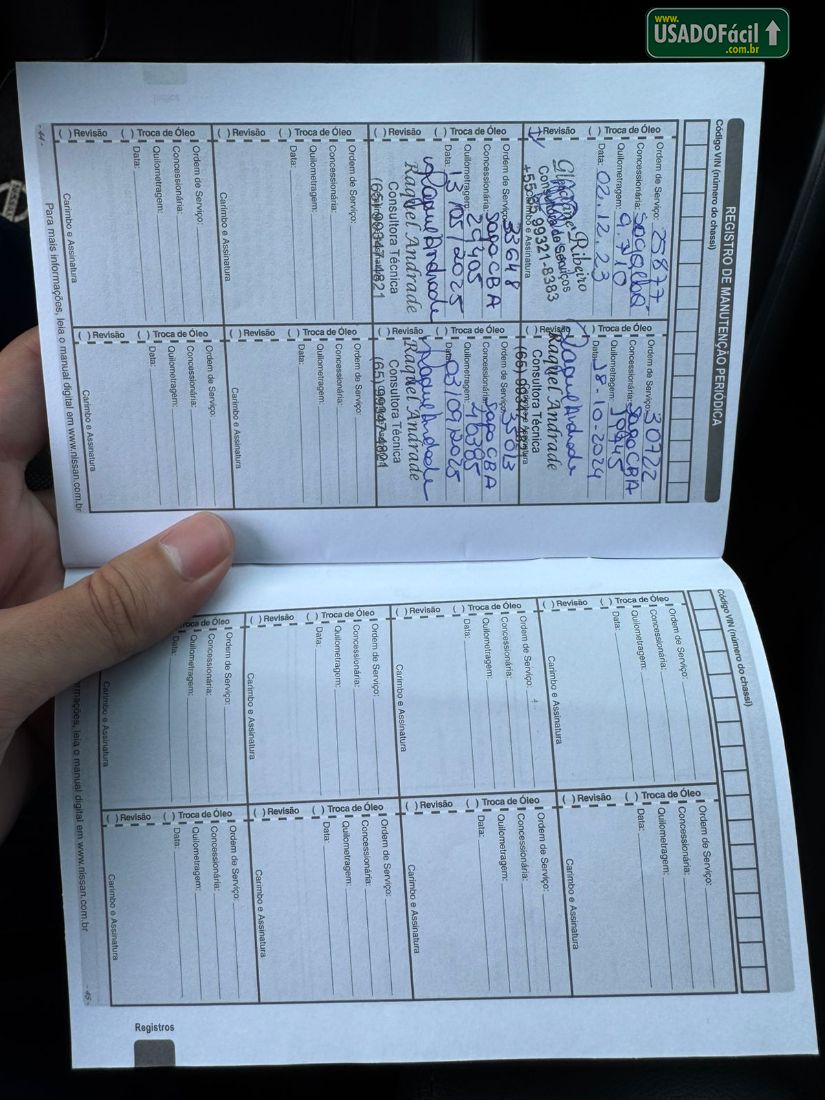 www.
USADOFácil
.com.br
REGISTRO DE MANUTENÇÃO PERIÓDICA
Código VIN (número do chassi)
Ordem de Serviço: 25877
Concessionária:
Quilometragem: 9.710
Data: 02.12.23
Ribeiro
+55 65 99321-8383
Carimbo e Assinatura
( ) Revisão ( ) Troca de Óleo
Ordem de Serviço: 30722
Concessionária: Saga CBA
Quilometragem:
Data: 18-10-2024
Raquel Andrade
Raquel Andrade
Consultora Técnica
(65) 99347-4821
( ) Revisão ( ) Troca de Óleo
Ordem de Serviço: 33648
Concessionária: Saga CBA
Quilometragem: 29405
Data: 13/05/2025
Raquel Andrade
Raquel Andrade
Consultora Técnica
(65) 99347-4821
( ) Revisão ( ) Troca de Óleo
Ordem de Serviço:
Concessionária: Saga CBA
Quilometragem:
Data: 03/09/2025
Raquel Andrade
Raquel Andrade
Consultora Técnica
(65) 99347-4821
( ) Revisão ( ) Troca de Óleo
Ordem de Serviço:
Concessionária:
Quilometragem:
Data:
Carimbo e Assinatura
( ) Revisão ( ) Troca de Óleo
Ordem de Serviço:
Concessionária:
Quilometragem:
Data:
Carimbo e Assinatura
( ) Revisão ( ) Troca de Óleo
Ordem de Serviço:
Concessionária:
Quilometragem:
Data:
Carimbo e Assinatura
( ) Revisão ( ) Troca de Óleo
Ordem de Serviço:
Concessionária:
Quilometragem:
Data:
Carimbo e Assinatura
Para mais informações, leia o manual digital em www.nissan.com.br
- 44 -
Código VIN (número do chassi)
( ) Revisão ( ) Troca de Óleo
Ordem de Serviço:
Concessionária:
Quilometragem:
Data:
Carimbo e Assinatura
( ) Revisão ( ) Troca de Óleo
Ordem de Serviço:
Concessionária:
Quilometragem:
Data:
Carimbo e Assinatura
( ) Revisão ( ) Troca de Óleo
Ordem de Serviço:
Concessionária:
Quilometragem:
Data:
Carimbo e Assinatura
( ) Revisão ( ) Troca de Óleo
Ordem de Serviço:
Concessionária:
Quilometragem:
Data:
Carimbo e Assinatura
( ) Revisão ( ) Troca de Óleo
Ordem de Serviço:
Concessionária:
Quilometragem:
Data:
Carimbo e Assinatura
( ) Revisão ( ) Troca de Óleo
Ordem de Serviço:
Concessionária:
Quilometragem:
Data:
Carimbo e Assinatura
Troca de Óleo
Ordem de Serviço:
Concessionária:
Quilometragem:
Data:
Carimbo e Assinatura
( ) Revisão ( ) Troca de Óleo
Ordem de Serviço:
Concessionária:
Quilometragem:
Data:
Carimbo e Assinatura
rmações, leia o manual digital em www.nissan.com.br
- 45 -
Registros